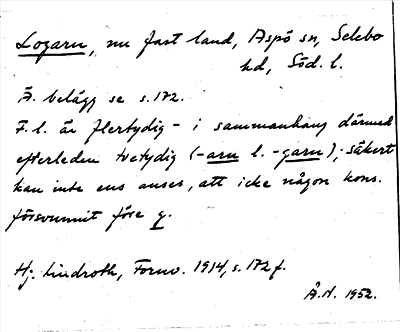 Logarn, nu fast land, Aspö sn, Selebo
hd, Söd. l.
Ä. belägg se s. 172.
F. l. är flertydig - i sammanhang därmed
efterleden tvetydig (-arn l. -garn); säkert
kan inte ens anses, att icke någon kons.
försvunnit före g.
Hj. Lindroth, Fornv. 1914, s. 172 f.
Å. N. 1952.